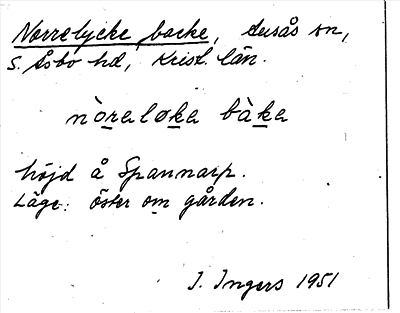 Norrelycke backe, Ausås sn,
S. Åsbo hd, Krist. län.
nòraløka bàka
höjd å Spannarp.
Läge: öster om gården.
I. Ingers 1951